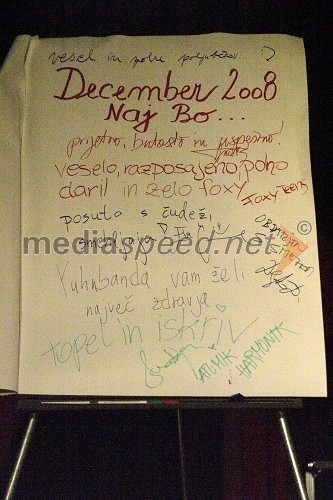 vesel in poln poljubčkov... :)
December 2008
Naj Bo...
prijetno, bučasto in uspešno!
veselo, razposajeno, polno
daril in zelo foxy
FOXY TEENS
posuto s čudeži,
mediaspeed.net ©
Yuhubanda vam želi
največ zdravja
topel in ISKRIV
ATOMIK
HARMONIK